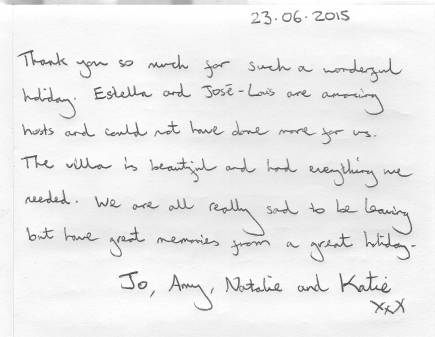 23.06.2015
Thank you so much for such a wonderful
holiday. Estella and José-Luis are amazing
hosts and could not have done more for us.
The villa is beautiful and had everything we
needed. We are all really sad to be leaving
but have great memories from a great holiday.
Jo, Amy, Natalie and Katie
xxx